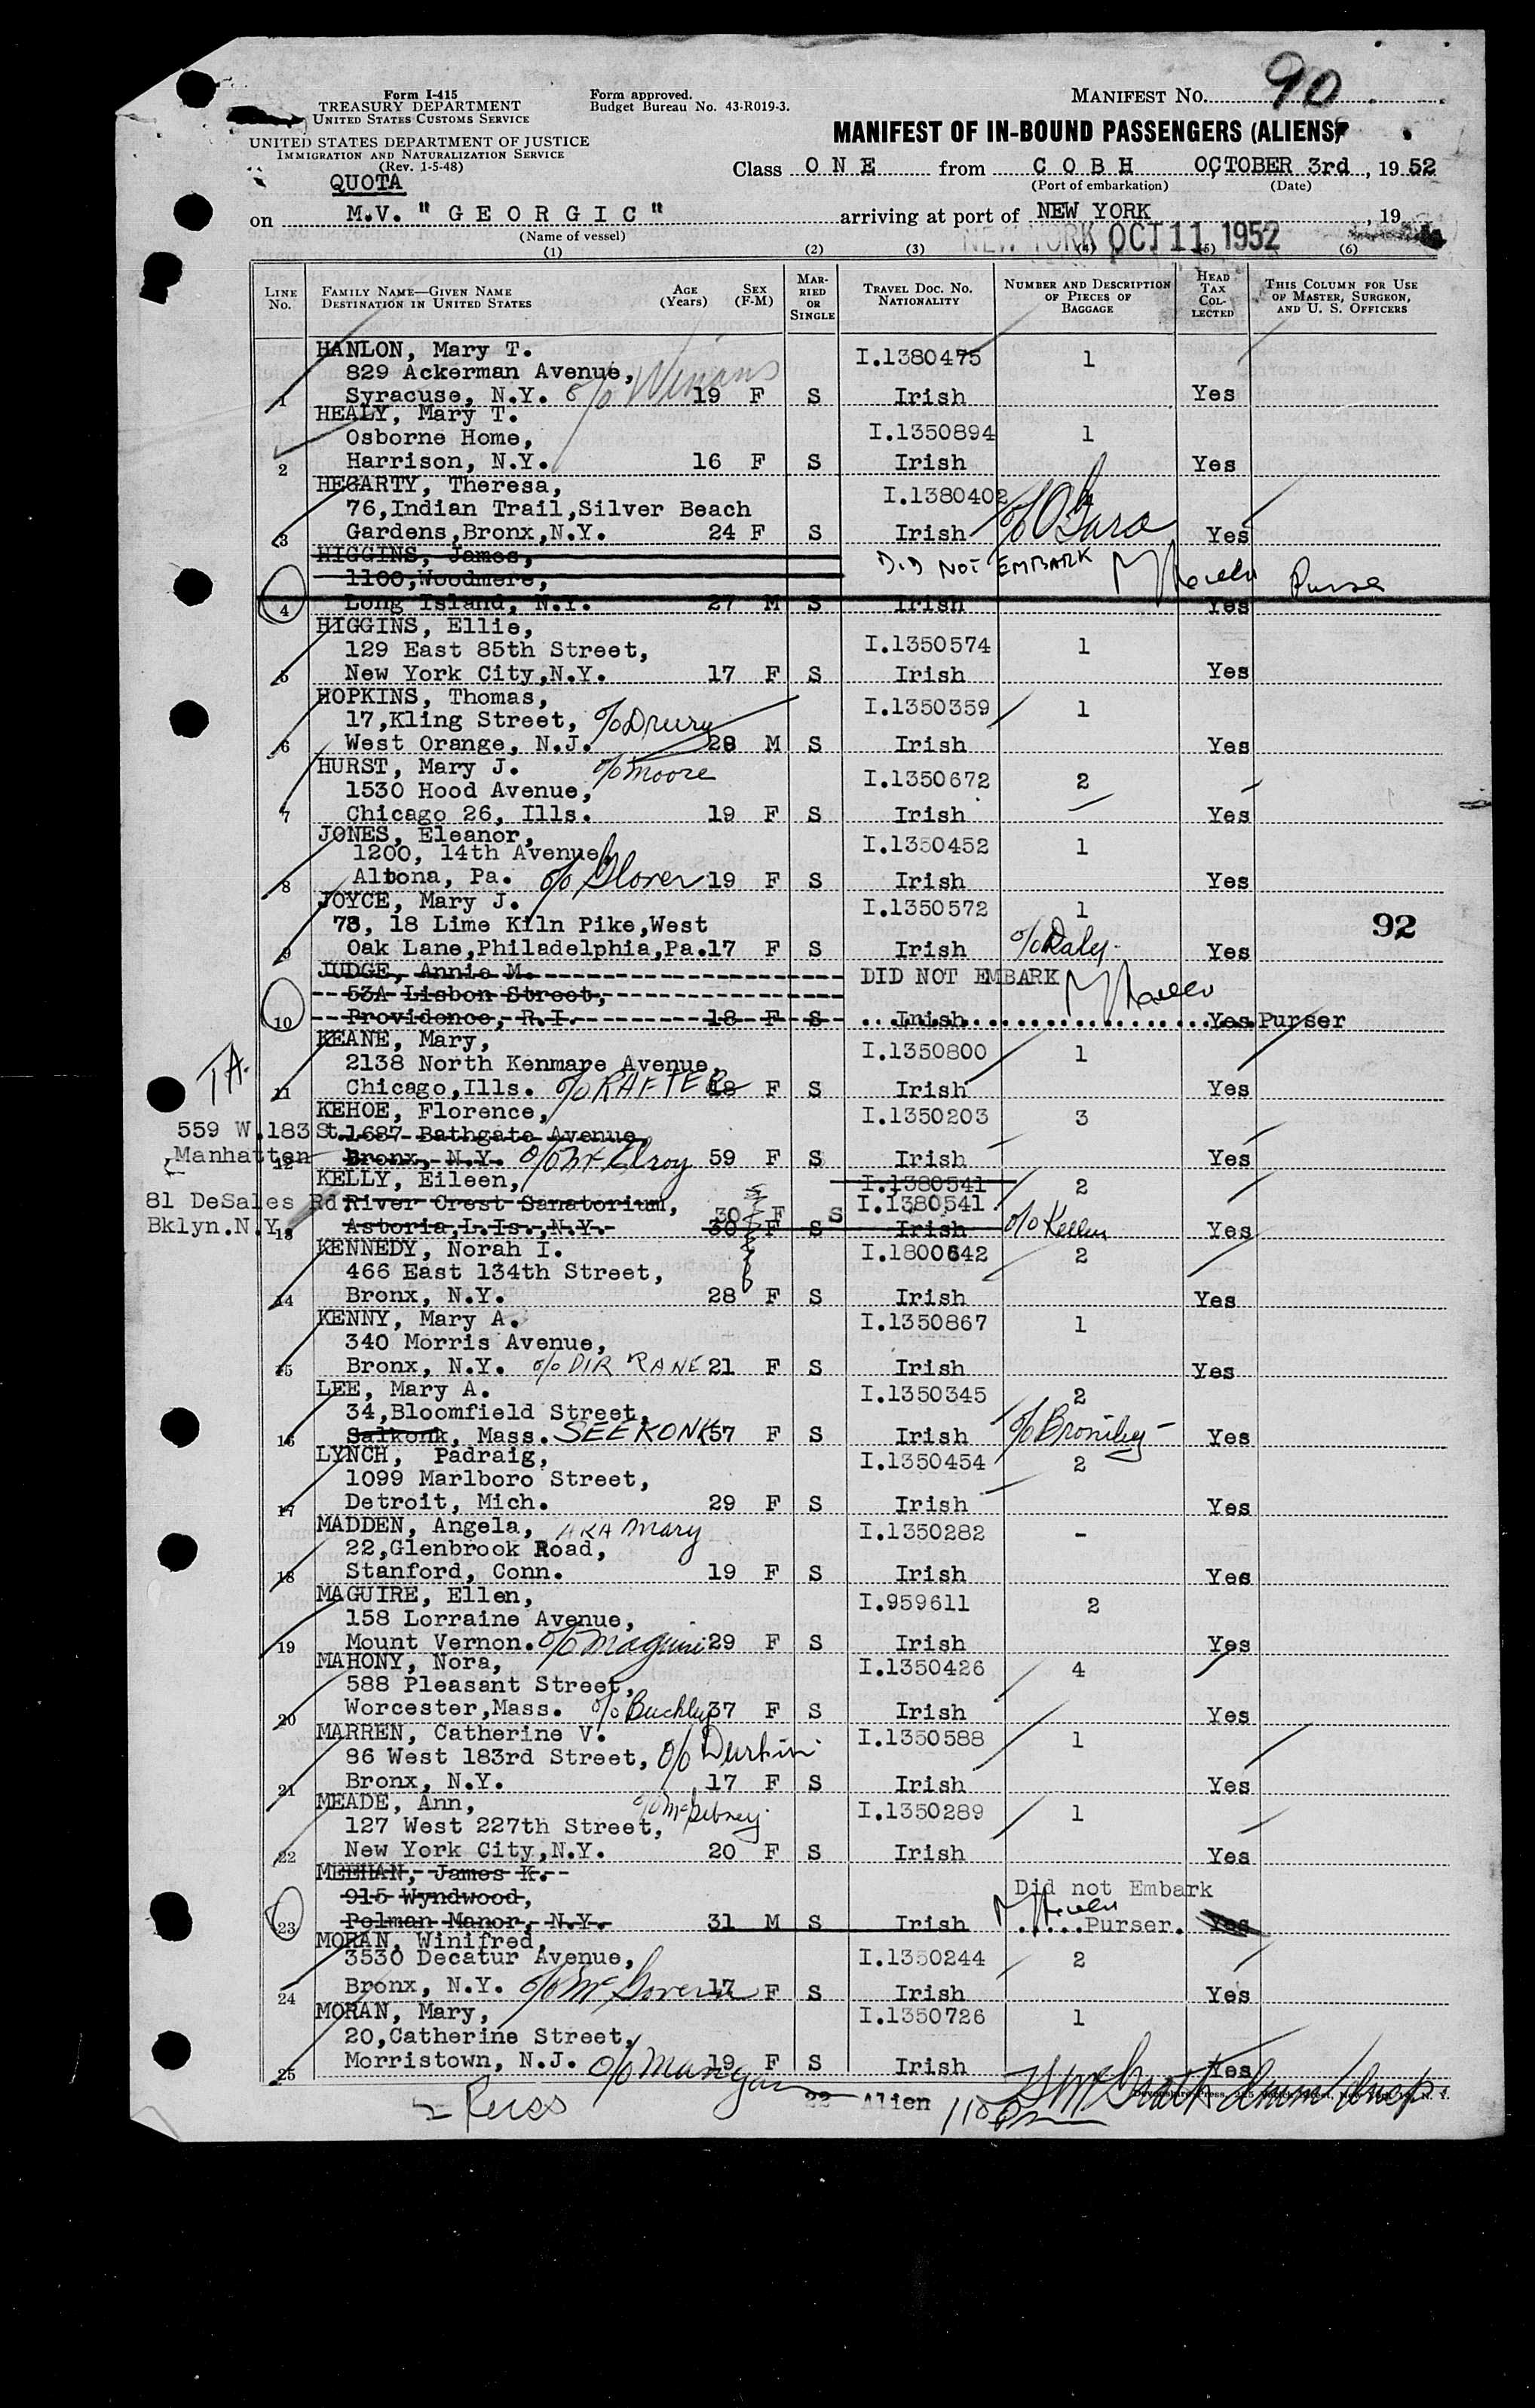 90
Form I-415
TREASURY DEPARTMENT
UNITED STATES CUSTOMS SERVICE
UNITED STATES DEPARTMENT OF JUSTICE
IMMIGRATION AND NATURALIZATION SERVICE
(Rev. 1-5-48)
Form approved.
Budget Bureau No. 43-R019-3.
MANIFEST NO.
MANIFEST OF IN-BOUND PASSENGERS (ALIENS)
QUOTA
Class ONE from COBH OCTOBER 3rd, 1952
(Port of embarkation) (Date)
on M.V. "GEORGIC" arriving at port of NEW YORK, 19
(Name of vessel)
NEW YORK OCT 11 1952
(1) (2) (3) (4) (5) (6)
LINE No. FAMILY NAME—GIVEN NAME DESTINATION IN UNITED STATES AGE (Years) SEX (F-M) MARRIED OR SINGLE TRAVEL DOC. NO. NATIONALITY NUMBER AND DESCRIPTION OF PIECES OF BAGGAGE HEAD TAX COLLECTED THIS COLUMN FOR USE OF MASTER, SURGEON, AND U. S. OFFICERS
HANLON, Mary T. I.1380475 1
829 Ackerman Avenue,
1 Syracuse, N.Y. c/o Winans 19 F S Irish Yes
HEALY, Mary T. I.1350894 1
Osborne Home,
2 Harrison, N.Y. 16 F S Irish Yes
HEGARTY, Theresa, I.1380402
76,Indian Trail,Silver Beach
3 Gardens,Bronx,N.Y. 24 F S Irish c/o O'Gara Yes
HIGGINS, James,
1100,Woodmere, DID NOT EMBARK Purser
4 Long Island, N.Y. 27 M S Irish Yes
HIGGINS, Ellie, I.1350574 1
129 East 85th Street,
5 New York City,N.Y. 17 F S Irish Yes
HOPKINS, Thomas, I.1350359 1
17,Kling Street, c/o Drury
6 West Orange, N.J. 28 M S Irish Yes
HURST, Mary J. c/o Moore I.1350672 2
1530 Hood Avenue,
7 Chicago 26, Ills. 19 F S Irish Yes
JONES, Eleanor, I.1350452 1
1200, 14th Avenue,
8 Altona, Pa. c/o Glover 19 F S Irish Yes
JOYCE, Mary J. I.1350572 1
73, 18 Lime Kiln Pike,West 92
9 Oak Lane,Philadelphia,Pa. 17 F S Irish c/o Daly Yes
JUDGE, Annie M. DID NOT EMBARK
53A Lisbon Street,
10 Providence, R.I. 18 F S Irish Yes Purser
TA.
KEANE, Mary, I.1350800 1
2138 North Kenmare Avenue,
11 Chicago,Ills. c/o RAFTER 18 F S Irish Yes
KEHOE, Florence, I.1350203 3
559 W.183 St. 1687 Bathgate Avenue,
Manhatten 12 Bronx, N.Y. c/o McElroy 59 F S Irish Yes
KELLY, Eileen, I.1380541 2
81 DeSales Rd River Crest Sanatorium, 30 F S I.1380541
Bklyn.N.Y. 13 Astoria,L.Is.,N.Y. 30 F S Irish c/o Kellen Yes
KENNEDY, Norah I. I.1800642 2
466 East 134th Street,
14 Bronx, N.Y. 28 F S Irish Yes
KENNY, Mary A. I.1350867 1
340 Morris Avenue,
15 Bronx, N.Y. c/o DIR RANE 21 F S Irish Yes
LEE, Mary A. I.1350345 2
34,Bloomfield Street,
16 Salkonk, Mass. SEEKONK 57 F S Irish Yes
LYNCH, Padraig, I.1350454 2
1099 Marlboro Street,
17 Detroit, Mich. 29 F S Irish Yes
MADDEN, Angela, AKA Mary I.1350282 -
22,Glenbrook Road,
18 Stanford, Conn. 19 F S Irish Yes
MAGUIRE, Ellen, I.959611 2
158 Lorraine Avenue,
19 Mount Vernon. c/o Maguire 29 F S Irish Yes
MAHONY, Nora, I.1350426 4
588 Pleasant Street,
20 Worcester,Mass. c/o Buckley 37 F S Irish Yes
MARREN, Catherine V. I.1350588 1
86 West 183rd Street, c/o Durkin
21 Bronx, N.Y. 17 F S Irish Yes
MEADE, Ann, c/o McGibney I.1350289 1
127 West 227th Street,
22 New York City,N.Y. 20 F S Irish Yes
MEEHAN, James K.
915 Wyndwood, Did not Embark
23 Pelman Manor, N.Y. 31 M S Irish Purser. Yes
MORAN, Winifred, I.1350244 2
3530 Decatur Avenue,
24 Bronx, N.Y. c/o McGovern 17 F S Irish Yes
MORAN, Mary, I.1350726 1
20,Catherine Street,
25 Morristown, N.J. c/o Mangan 19 F S Irish Yes
22 Alien